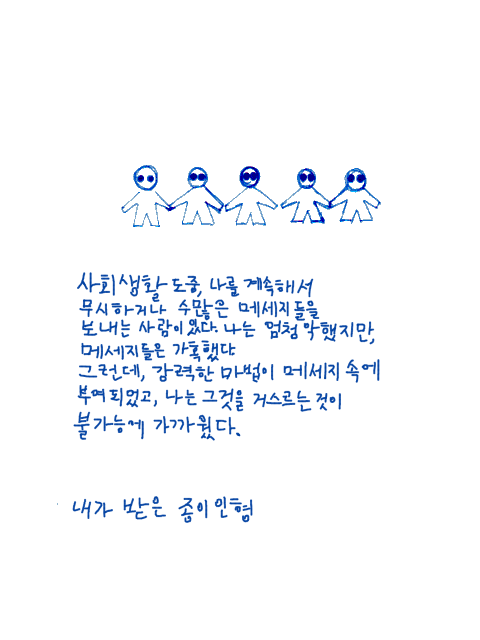 사회생활 도중, 나를 계속해서
무시하거나 수많은 메세지들을
보내는 사람이 있다. 나는 엄청 악했지만,
메세지들은 가혹했다
그런데, 강력한 마법이 메세지 속에
부여되었고, 나는 그것을 거스르는 것이
불가능에 가까웠다.
내가 받은 종이인형